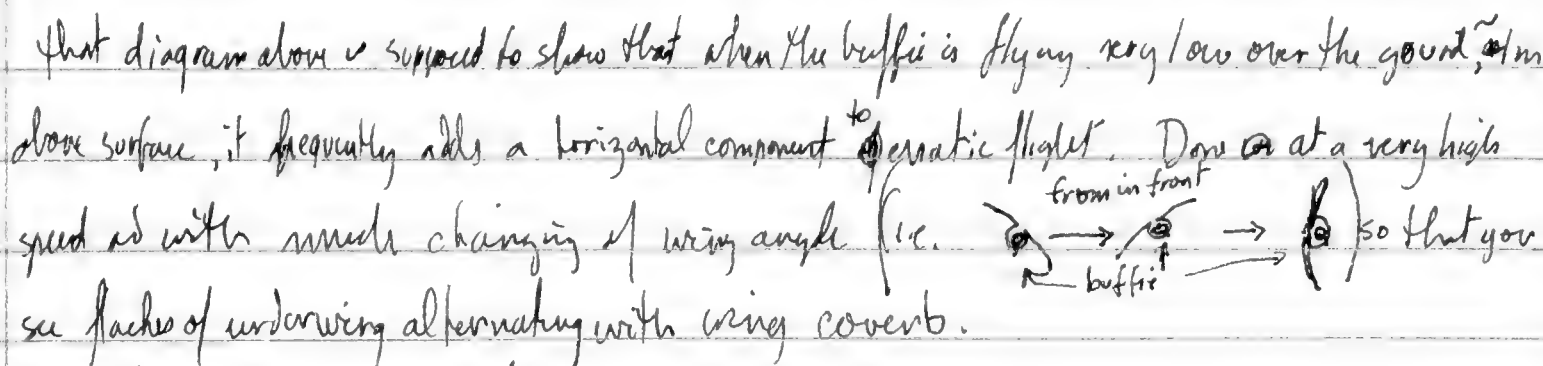 that diagram above is supposed to show that when the buffie is flying very low over the ground, ~1m
above surface, it frequently adds a horizontal component to erratic flight. Done at a very high
from in front
speed and with much changing of wing angle (i.e. → → ) so that you
buffie
see flashes of underwing alternating with wing coverts.